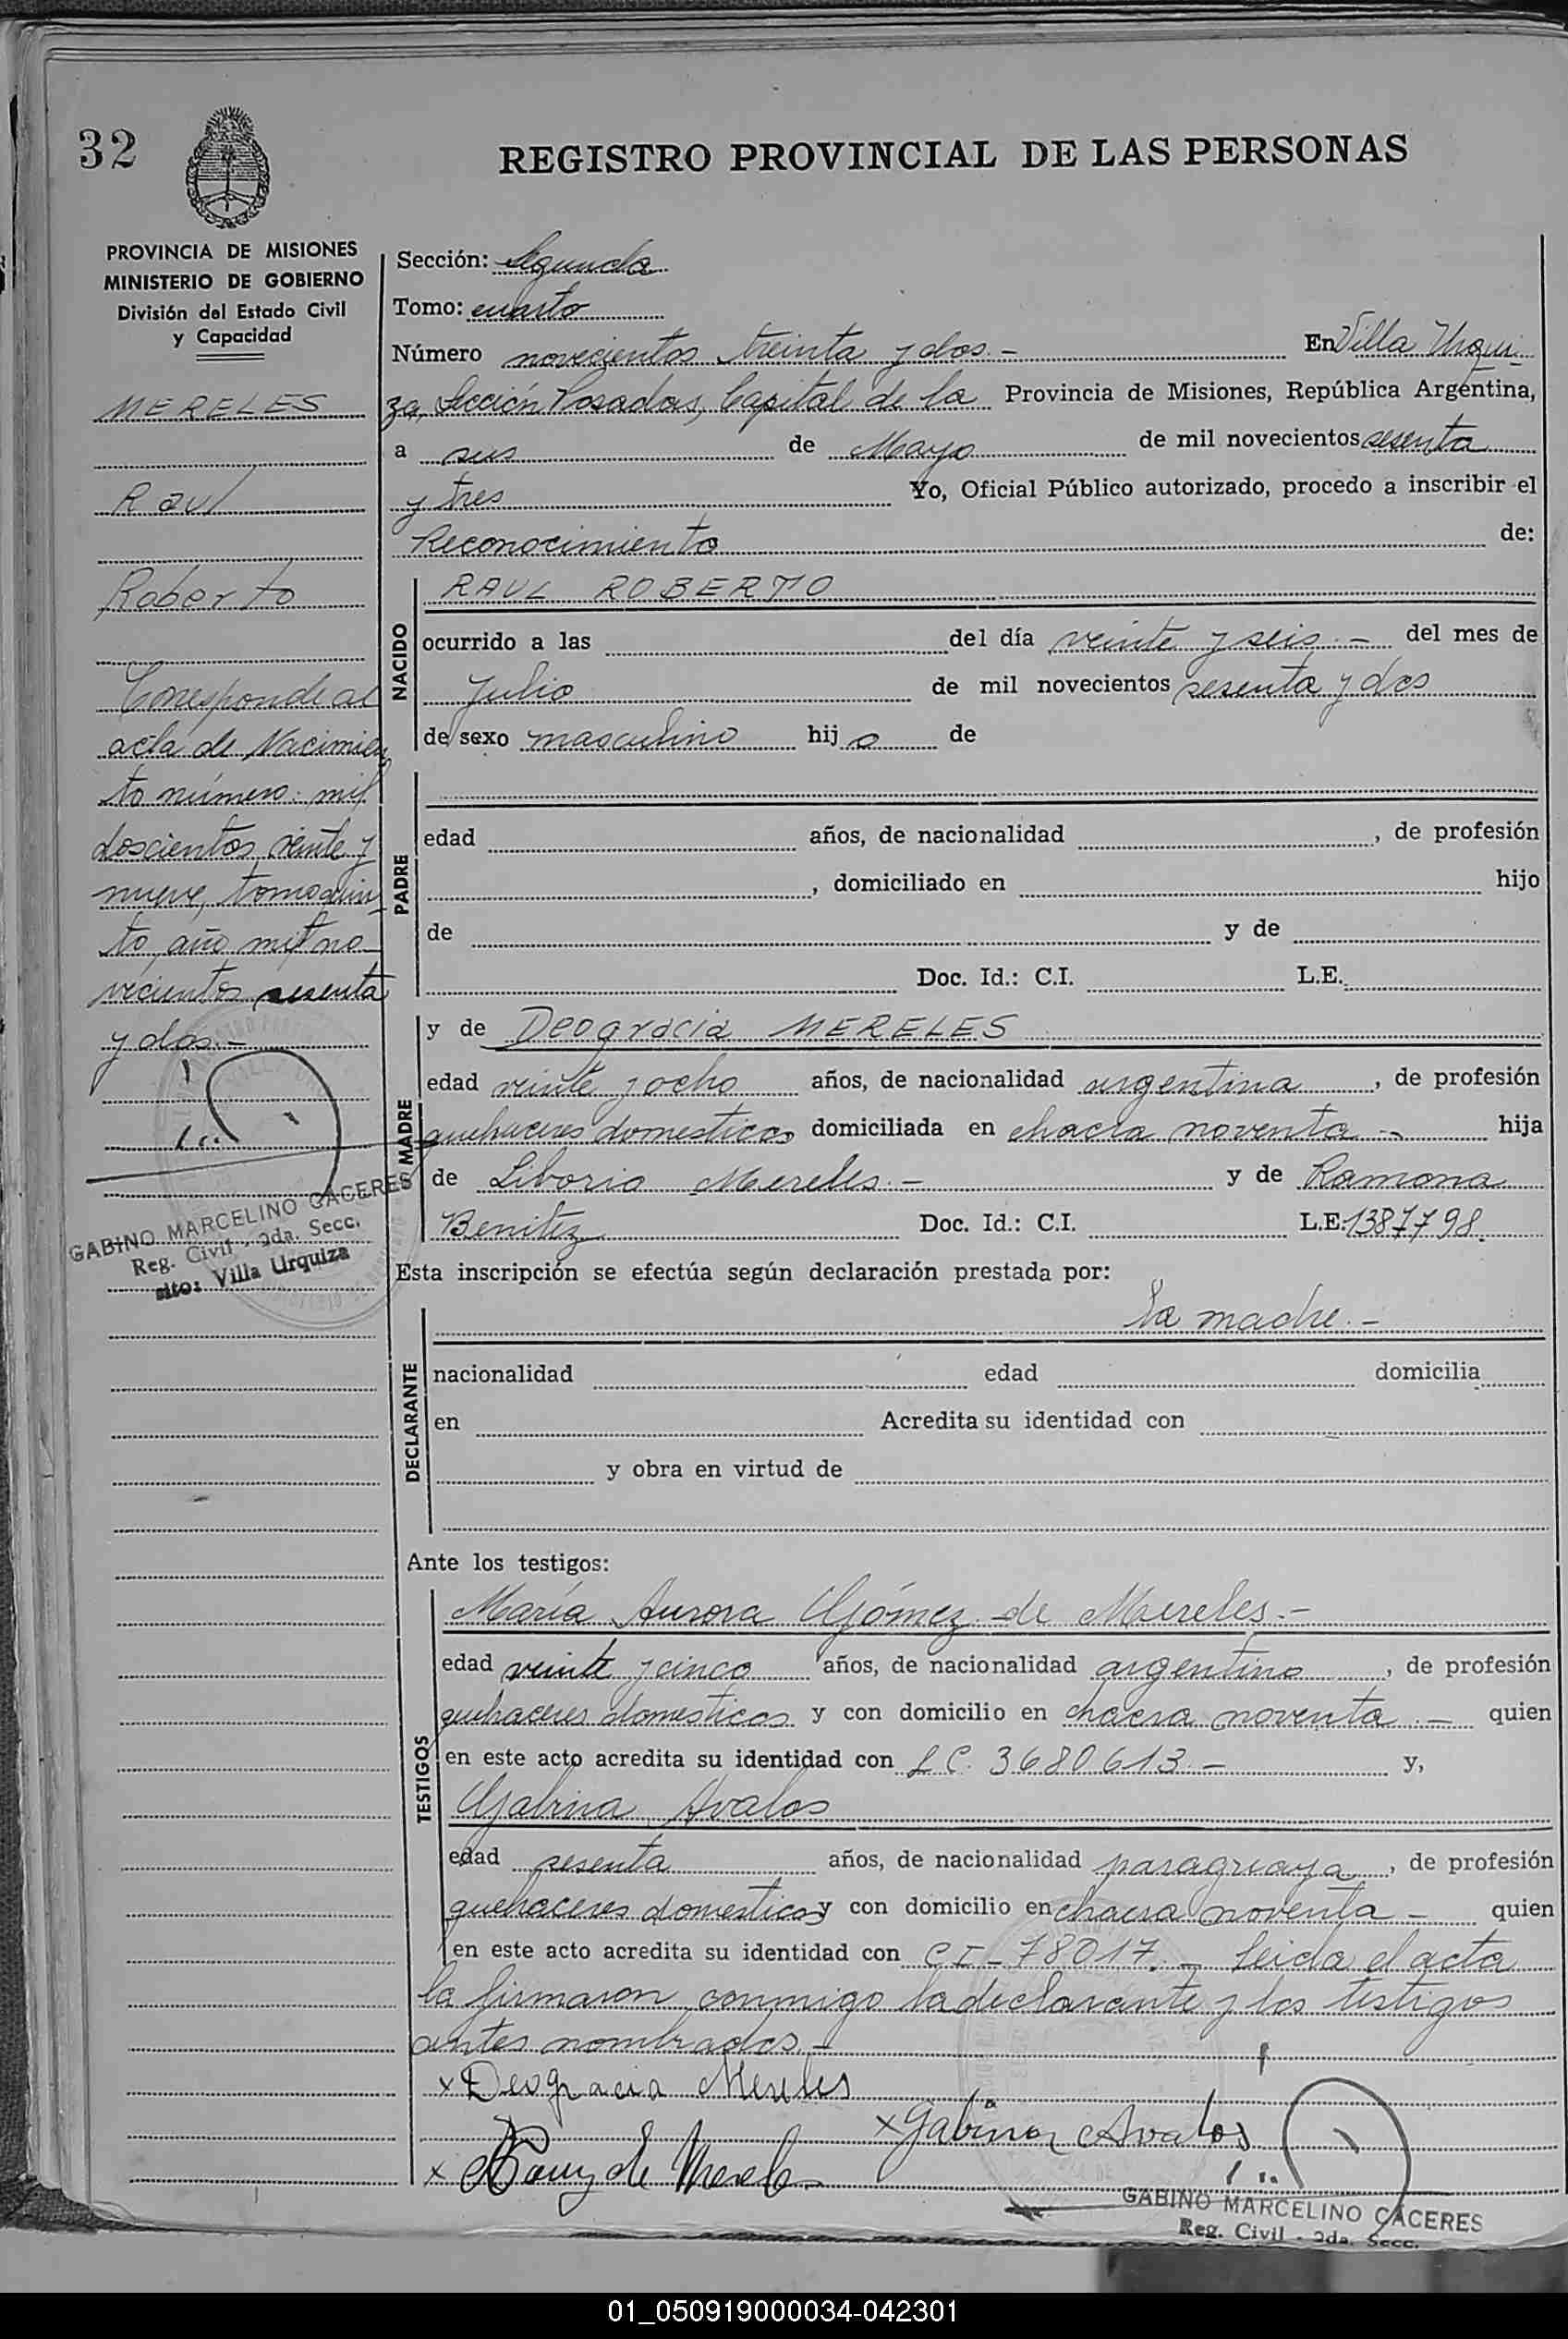 32
REGISTRO PROVINCIAL DE LAS PERSONAS
PROVINCIA DE MISIONES
MINISTERIO DE GOBIERNO
División del Estado Civil
y Capacidad
MERELES
Raul
Roberto
Corresponde al
acta de Nacimien
to número: mil
doscientos veinte y
nueve, tomo quin-
to, año mil no-
vecientos sesenta
y dos.-
GABINO MARCELINO CACERES
Reg. Civil - 2da. Secc.
sito: Villa Urquiza
Sección: Segunda
Tomo: cuarto
Número novecientos treinta y dos.- En Villa Urqui-
za, Sección Posadas, Capital de la Provincia de Misiones, República Argentina,
a seis de Mayo de mil novecientos sesenta
y tres Yo, Oficial Público autorizado, procedo a inscribir el
Reconocimiento de:
NACIDO
RAUL ROBERTO
ocurrido a las del día veinte y seis.- del mes de
Julio de mil novecientos sesenta y dos
de sexo masculino hijo de
PADRE
edad años, de nacionalidad , de profesión
, domiciliado en hijo
de y de
Doc. Id.: C.I. L.E.
MADRE
y de Deogracia MERELES
edad veinte y ocho años, de nacionalidad argentina , de profesión
quehaceres domesticos domiciliada en chacra noventa - hija
de Liborio Mereles.- y de Ramona
Benitez Doc. Id.: C.I. L.E. 1387798.
Esta inscripción se efectúa según declaración prestada por:
DECLARANTE
la madre.-
nacionalidad edad domicilia
en Acredita su identidad con
y obra en virtud de
Ante los testigos:
TESTIGOS
María Aurora Gómez de Mereles.-
edad veinte y cinco años, de nacionalidad argentina , de profesión
quehaceres domesticos y con domicilio en chacra noventa.- quien
en este acto acredita su identidad con L.C. 3680613.- y,
Gabina Avalos
edad sesenta años, de nacionalidad paraguaya , de profesión
quehaceres domesticos y con domicilio en chacra noventa - quien
en este acto acredita su identidad con CI- 78017.- Leida el acta
la firmaron conmigo la declarante y los testigos
antes nombrados.-
x Deogracia Mereles
x Gabina Avalos
x de Mereles
GABINO MARCELINO CACERES
Reg. Civil - 2da. Secc.
01_050919000034-042301